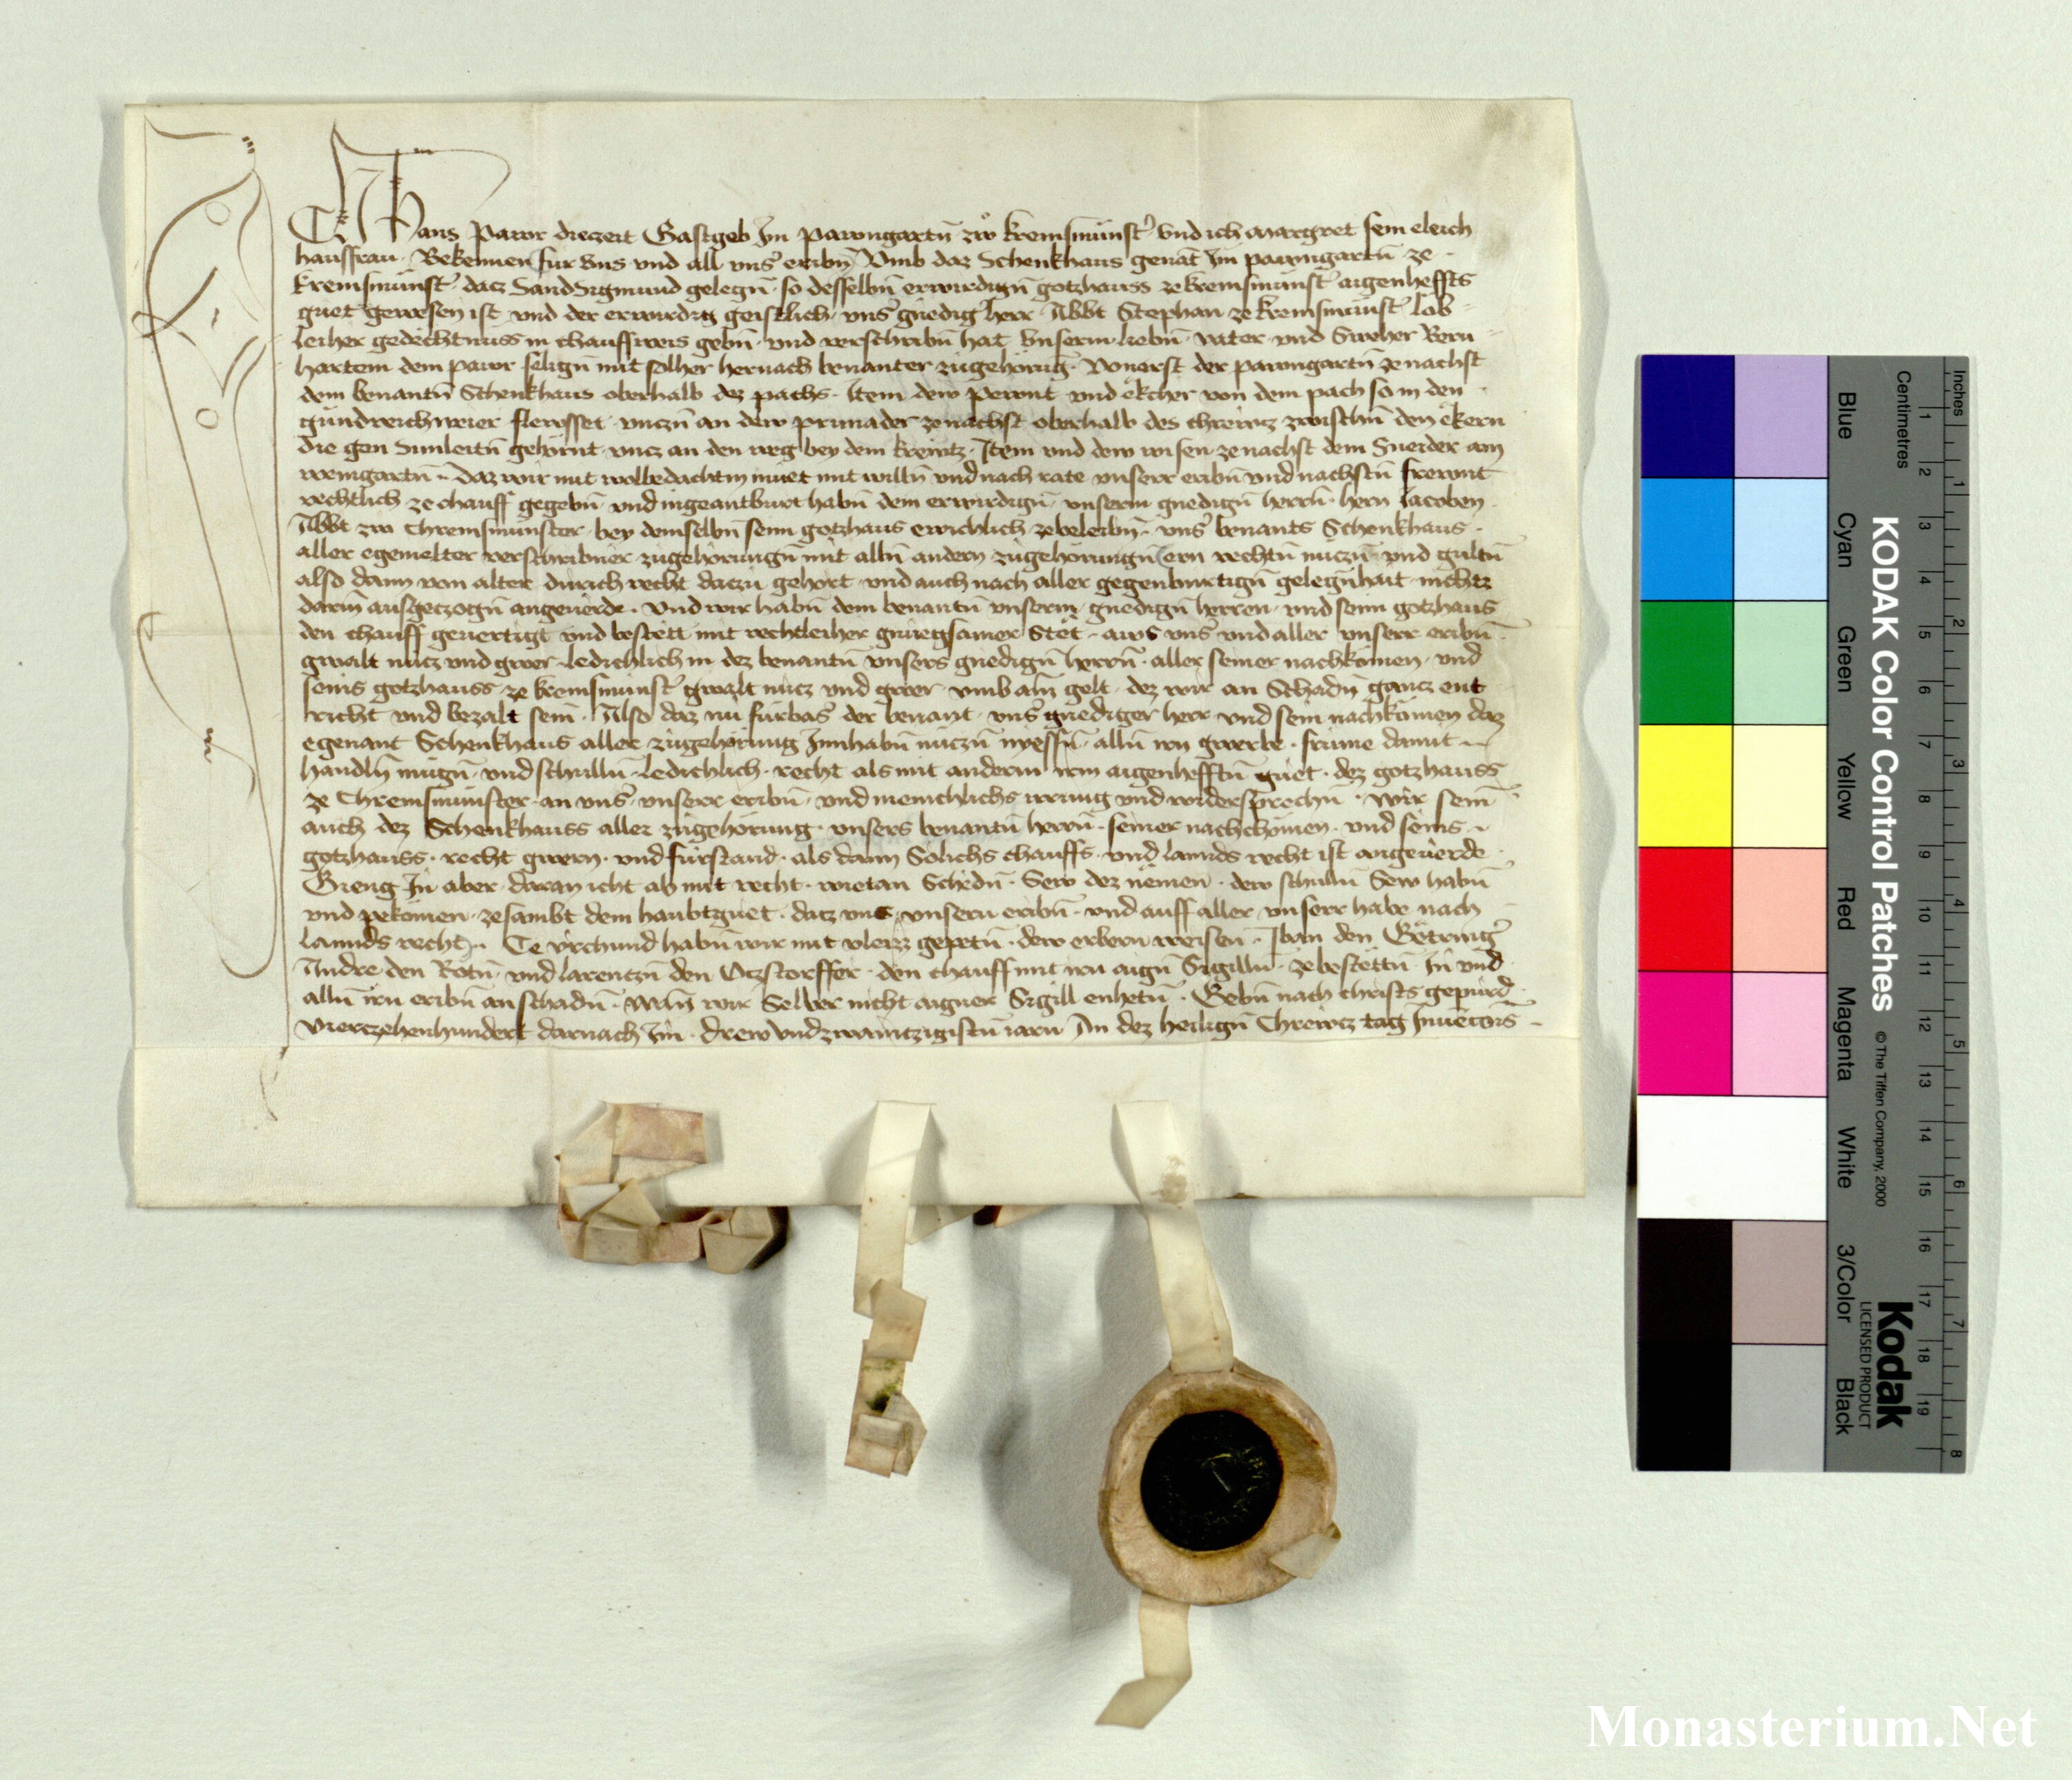 Ich Hans Pawr diczeit Gastgeb Im Pawmgartn̄ zẘ kremsmünst̄ vnd ich Margret sein eleich
hausfraw · Bekennen für vns vnd all vns̄ eribn̄ Vmb daz Schenkhaus genāt Im pawmgartn̄ · ze
kremsmünst̄ dacz Sand Sigmund gelegn̄ · so desselbn̄ erwirdign̄ gotzhauss ze kremsmünst̄ aigenheffts
güet gewesen ist vnd der erwirdig geistlich · vns̄ gnedig herr Abbt Stephan ze kremsmünst̄ lob
leicher gedechtnuss in chauffweis gebn̄ · vnd verschribn̄ hat Vnserm liebn̄ · vater · vnd Sweher Bern
hartem dem pawr selign̄ mit solher hernach benanter zügehörūg · Vonerst der pawmgartn̄ ze nachst
dem benantn̄ Schenkhaus oberhalb dez pachs · Item dew pewnt vnd ekcher von dem pach so in den
gundreichweier flewsset · vnczn̄ an dew prunader ze nachst oberhalb des chrewcz zwischn̄ den ekern
die gen Sunleitn̄ gehörnt · vncz an den weg bey dem krewtz · Item vnd dew wisen ze nachst dem Sneider am
weingartn̄ · Daz wir mit wolbedachtm müet mit willn̄ vnd nach rate vnserr eribn̄ vnd nachstn̄ frewnt
rechtlich ze chauff gegebn̄ · vnd ingeantburt habn̄ dem erwirdign̄ · vnserm gnedign̄ herrn̄ · hern Jacoben
Abbt zw Chremsmünster · bey demselbn̄ seim gotzhaus ewichlich ze beleibn̄ · vns̄ benants Schenkhaus ·
aller egemelter verschribner zügehörungn̄ mit alln̄ andern zügehörungn̄ ern rechtn̄ nüczn̄ · vnd gültn̄
also dann von alter durich recht daczu gehort · vnd auch nach aller gegenburtign̄ gelegn̄hait · nichtz
darin̄ ausgeczogn̄ angeuerde · Vnd wir habn̄ dem benantn̄ vnserm gnedign̄ herren · vnd seim gotzhaus
den chauff geuertigt vnd bestett mit rechtleicher gnuegsamer Stēt · aws vns̄ vnd aller vnserr eribn̄
gwalt nücz vnd gwer · ledichlich in dez benantn̄ vnsers gnedign̄ herrn̄ · aller seiner nachkömen · vnd
seins gotzhauss · ze kremsmünst̄ gwalt nücz vnd gwer · vmb ain gelt · dez wir an Schadn̄ gancz ent
richt vnd bezalt sein · Also daz nü fürbas der benant vns̄ gnediger herr vnd sein nachkömen daz
egenant Schenkhaus aller zügehörung Innhabn̄ nüczn̄ nyessn̄ · alln̄ irn gwerbe · frume damit
handln̄ mügn̄ · vnd schulln̄ · ledichlich · recht als mit anderm irm aigenhefftn̄ güet · dez gotzhauss
ze Chremsmünster · an vns̄ · vnserr eribn̄ · vnd menichlichs irrung vnd widersprechn̄ · Wir sein
auch dez Schenkhauss aller zügehörung · vnsers benantn̄ herrn̄ · seiner nachchömen · vnd seins
gotzhauss · recht gwern · vnd fürstand · als dann Solichs chauffs · vnd lannds recht ist angeuerde
Gieng In aber · daran icht ab mit recht · wietan Schedn̄ · Sew dez nemen · dew schulln̄ Sew habn̄
vnd pekömen · ze sambt dem haubtgüet · datz vns vnsern eribn̄ · vnd auff aller vnserr habe nach
lannds recht · Ze vrchund habn̄ wir mit vleizz gepetn̄ · dew erbern weisen · den
Andre den Rotn̄ · vnd larentzn̄ den · den chauff mit irn aign̄ Sigilln̄ · ze bestettn̄ · In vnd
alln̄ irn eribn̄ an schadn̄ · wan̄ wir Selber nicht aigner Sigill enhetn̄ · Gebn̄ nach christs gepurd
Vierczehenhundert darnach Im · drew vnd zwaintzigistn̄ iarn An dez heilign̄ Chrewcz tag Inuēcōis
Inches
Centimetres
1 2 3 4 5 6 7 8 9 10 11 12 13 14 15 16 17 18 19
1 2 3 4 5 6 7 8
KODAK Color Control Patches
© The Tiffen Company, 2000
Kodak
LICENSED PRODUCT
Blue Cyan Green Yellow Red Magenta White 3/Color Black
Monasterium.Net